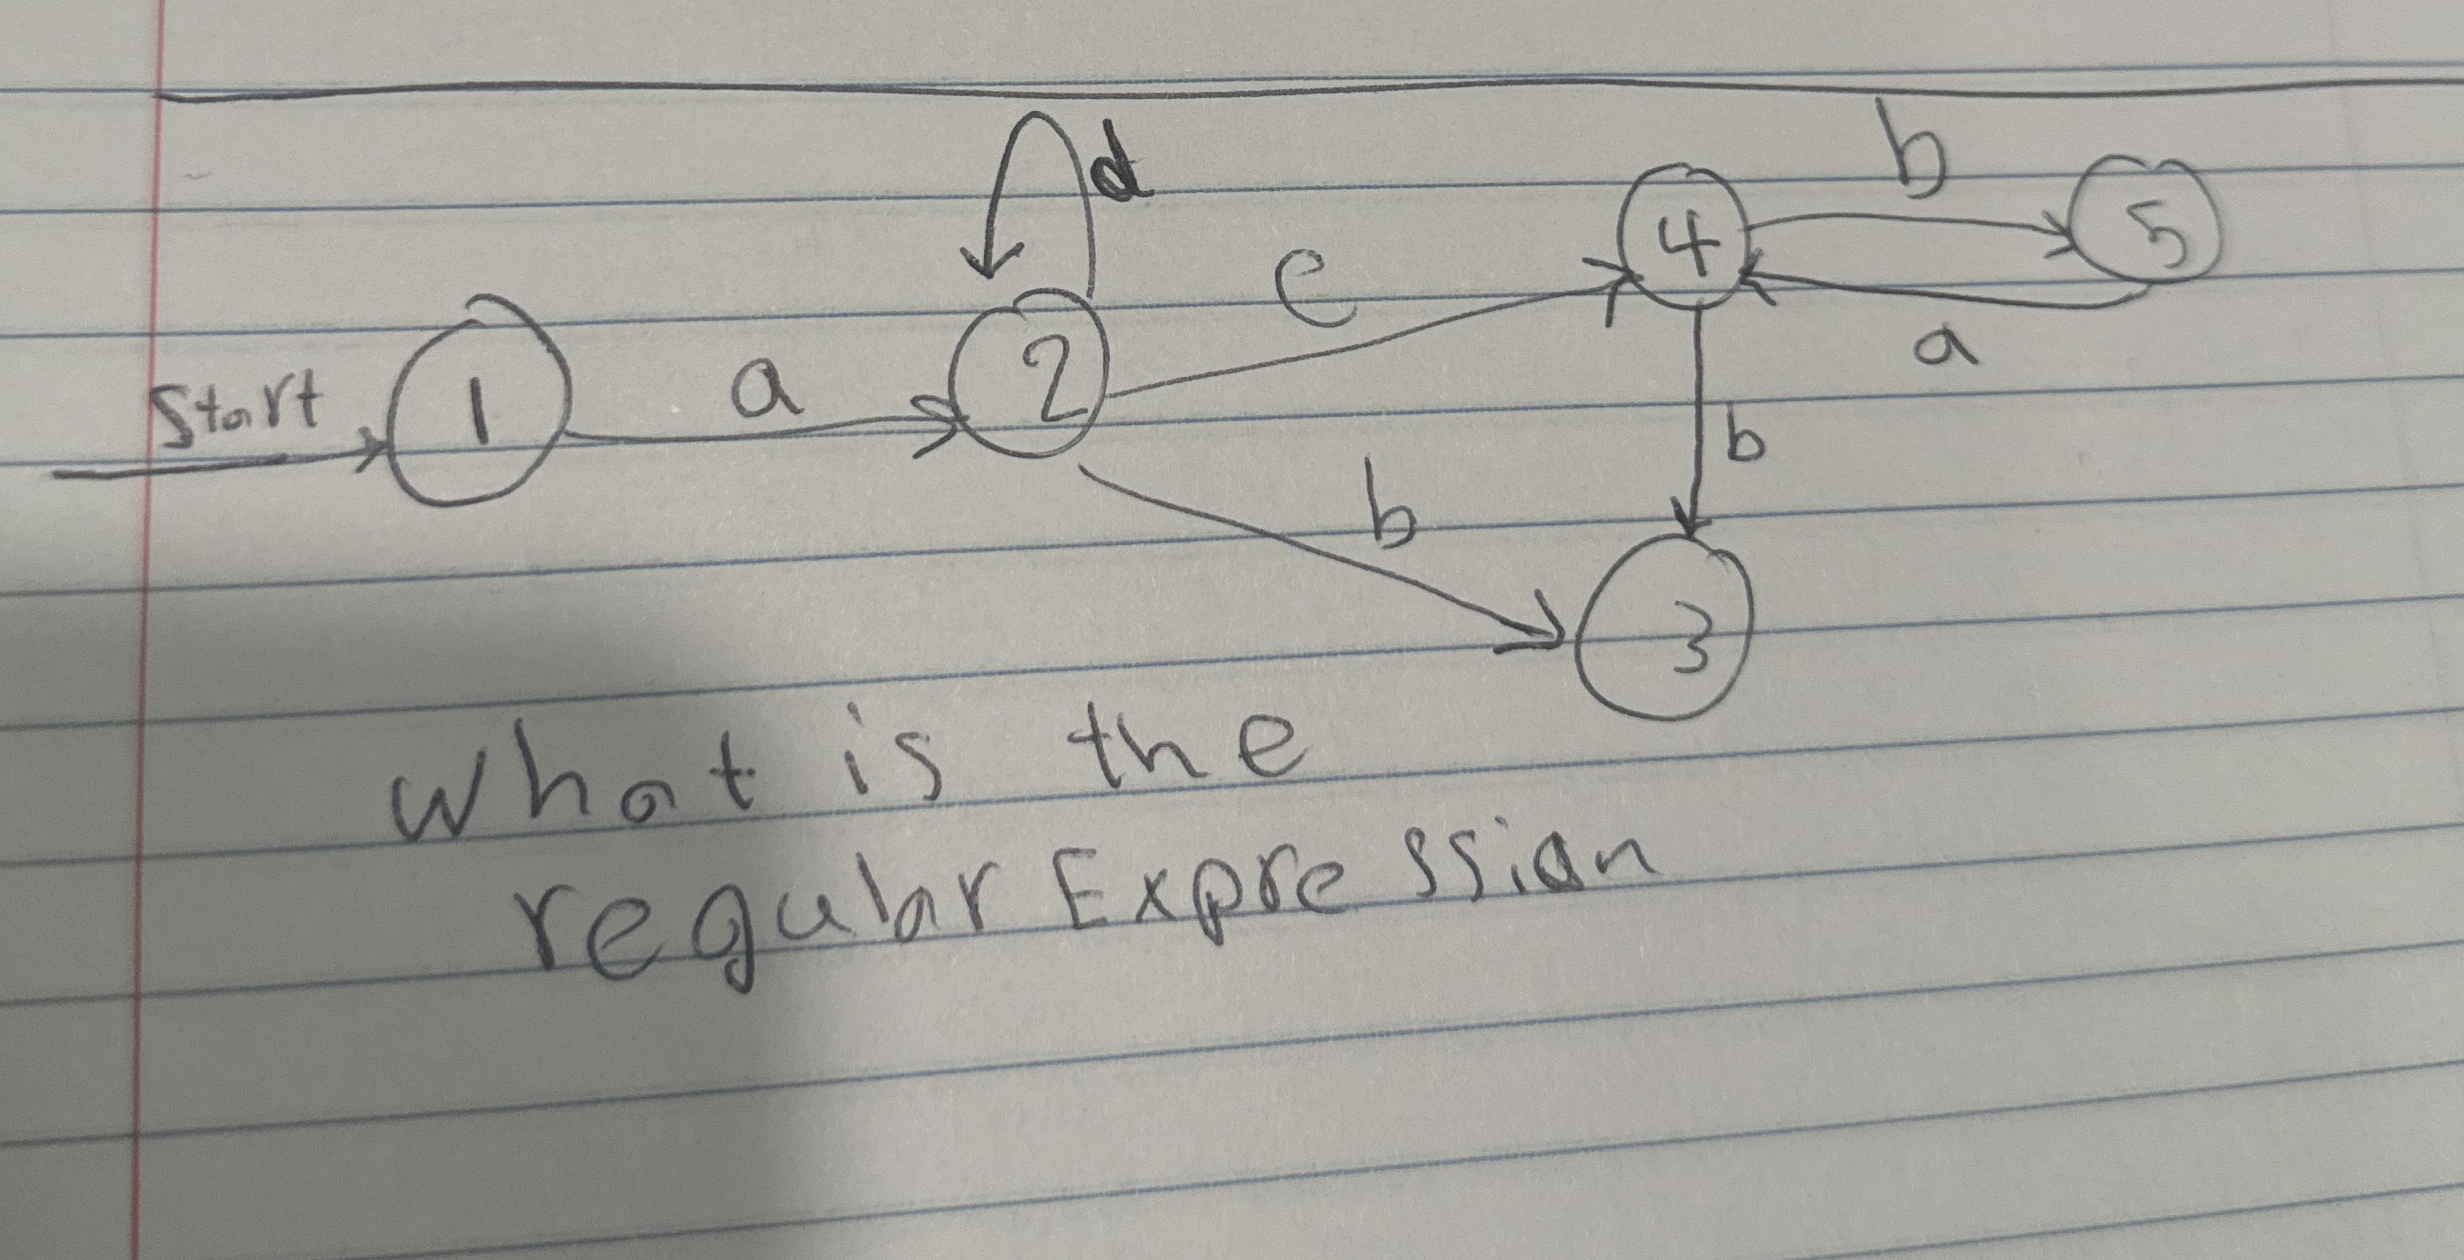 d
b
4
5
e
a
Start
1
a
2
b
b
3
what is the
regular Expression